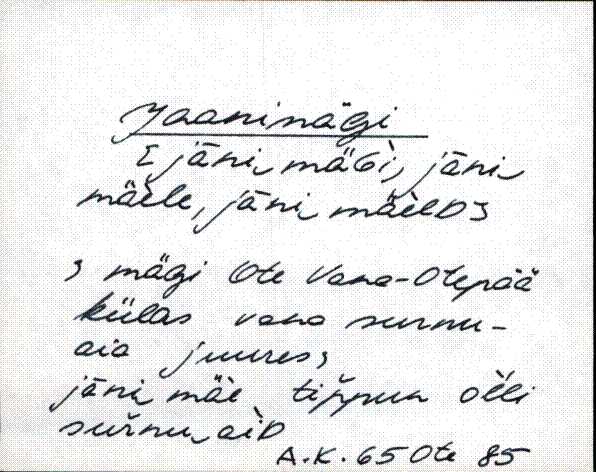 Jaanimägi
[jāni‿mäGì, jāni‿
mäèle, jāni‿mäèlD]
, mägi Ote Vana-Otepää
külas vana surnu-
aia juures,
jāni‿mäe tip̌pun òĺli
surnu‿aìD
A.K. 65 Ote 85